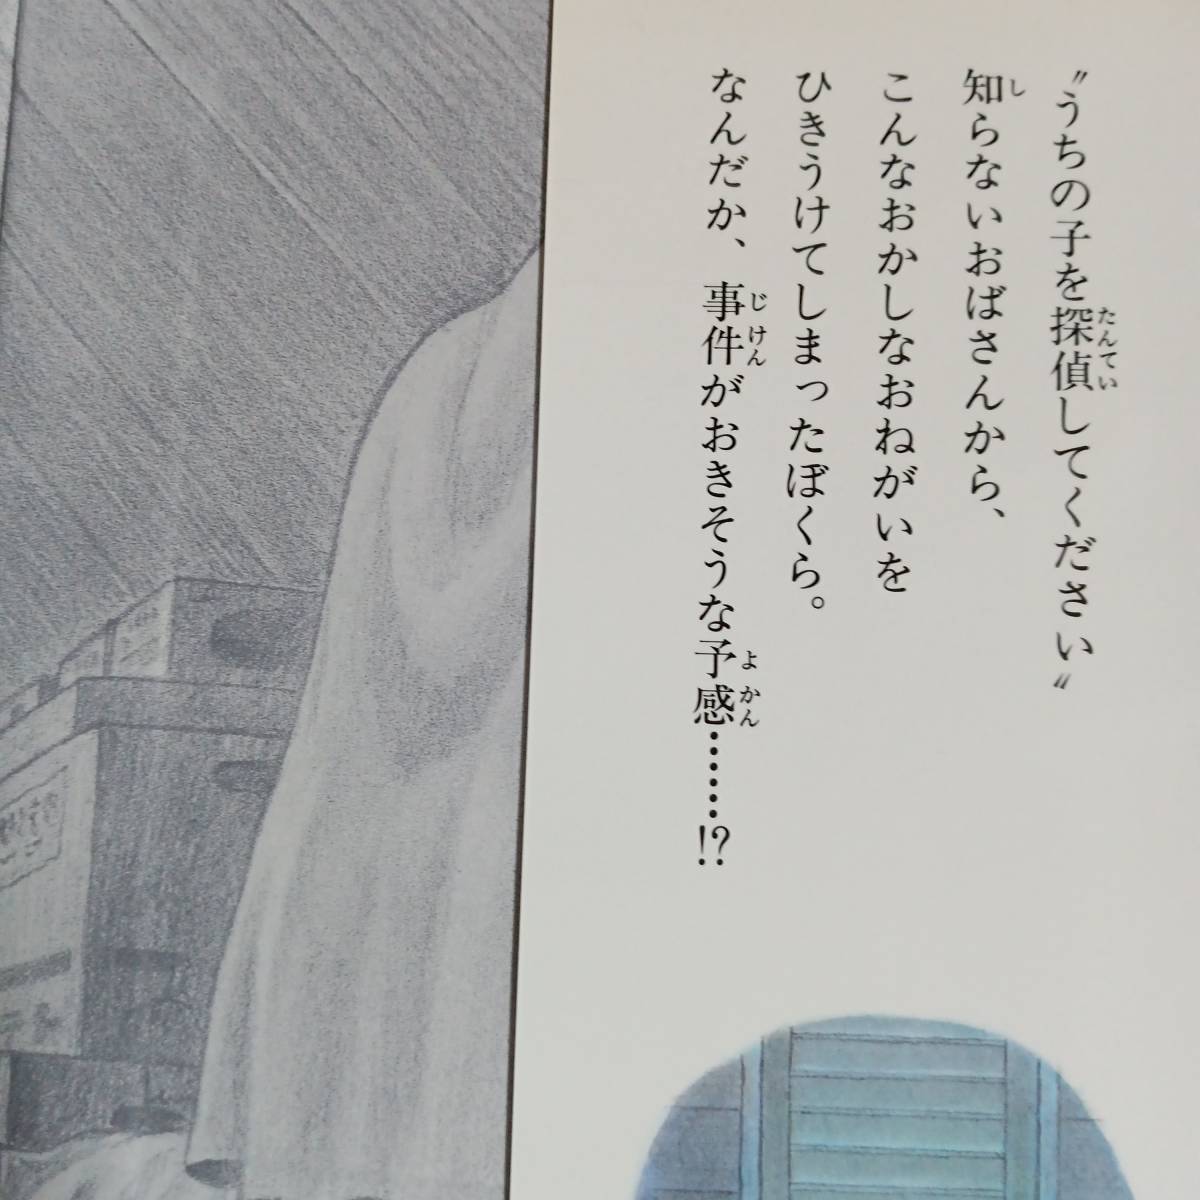 〝うちの子を探偵してください〟
知らないおばさんから、
こんなおかしなおねがいを
ひきうけてしまったぼくら。
なんだか、事件がおきそうな予感……!?